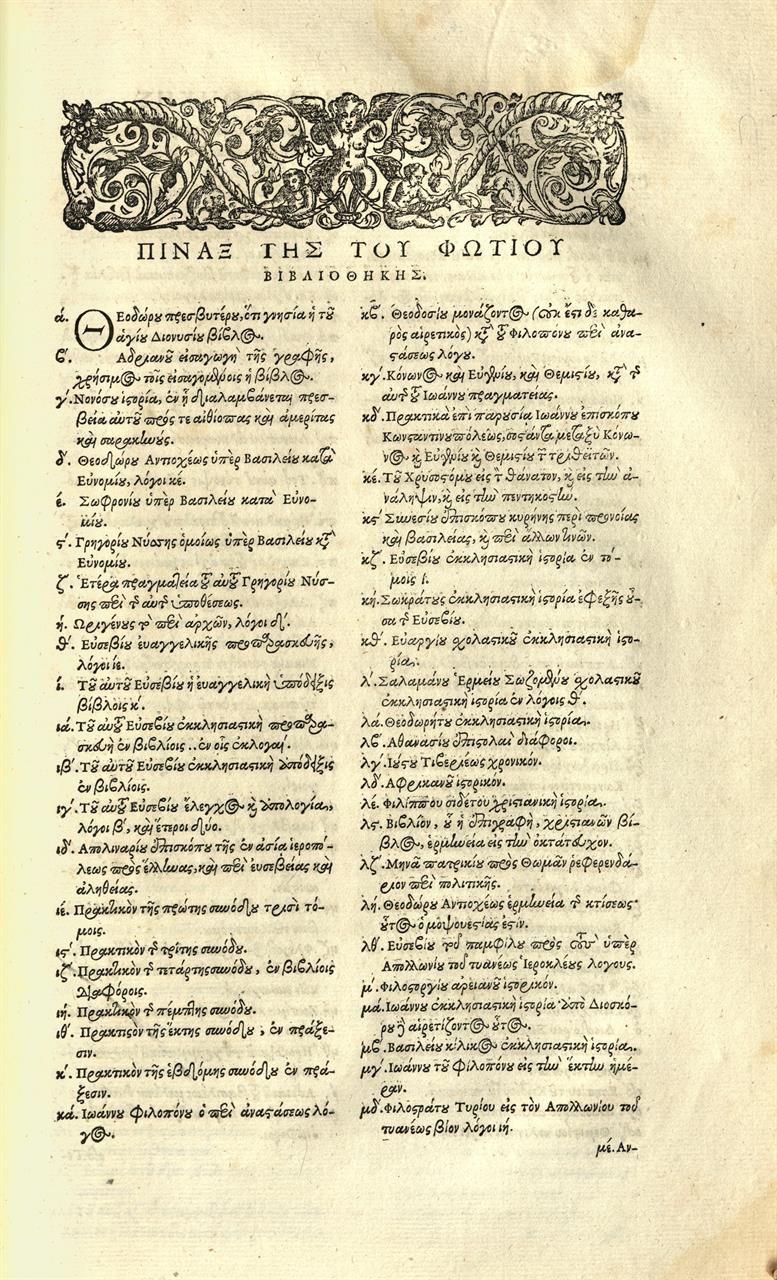 ΠΙΝΑΞ ΤΗΣ ΤΟΥ ΦΩΤΙΟΥ
ΒΙΒΛΙΟΘΗΚΗΣ.
ά. ΘΕοδώρου πρεσβυτέρου, ὅτι γνησία ἡ τοῦ
ἁγίου Διονυσίου βίβλος.
β΄. Αδριανοῦ εἰσαγωγὴ τῆς γραφῆς,
χρήσιμος τοῖς εἰσαγομένοις ἡ βίβλος.
γ΄. Νονόσου ἱστορία, ἐν ᾗ διαλαμβάνεται πρεσ-
βεία αὐτοῦ πρός τε αἰθίοπας καὶ ἀμερίτας
καὶ σαρακηνούς.
δ΄. Θεοδώρου Αντιοχέως ὑπὲρ Βασιλείου κατὰ
Εὐνομίου, λόγοι κέ.
έ. Σωφρονίου ὑπὲρ Βασιλείου κατὰ Εὐνο-
μίου.
ϛ΄. Γρηγορίου Νύσσης ὁμοίως ὑπὲρ Βασιλείου κατ᾽
Εὐνομίου.
ζ΄. Ἑτέρα πραγματεία τοῦ αὐτοῦ Γρηγορίου Νύσ-
σης περὶ τῆς αὐτῆς ὑποθέσεως.
ή. Ωριγένους τὸ περὶ ἀρχῶν, λόγοι δ΄.
θ΄. Εὐσεβίου εὐαγγελικῆς προπαρασκευῆς,
λόγοι ιέ.
ί. Τοῦ αὐτοῦ Εὐσεβίου ἡ εὐαγγελικὴ ὑπόδειξις
βίβλοις κ΄.
ιά. Τοῦ αὐτοῦ Εὐσεβίου ἐκκλησιαστικὴ προπαρα-
σκευὴ ἐν βιβλίοις .. ἐν οἷς ἐκλογαί.
ιβ΄. Τοῦ αὐτοῦ Εὐσεβίου ἐκκλησιαστικὴ ὑπόδειξις
ἐν βιβλίοις.
ιγ΄. Τοῦ αὐτοῦ Εὐσεβίου ἔλεγχος καὶ ἀπολογία,
λόγοι β΄, καὶ ἕτεροι δύο.
ιδ΄. Απολιναρίου ἐπισκόπου τῆς ἐν ἀσίᾳ ἱεροπό-
λεως πρὸς ἕλληνας, καὶ περὶ εὐσεβείας καὶ
ἀληθείας.
ιέ. Πρακτικὸν τῆς πρώτης συνόδου τρισὶ τό-
μοις.
ιϛ΄. Πρακτικὸν τῆς τρίτης συνόδου.
ιζ΄. Πρακτικὸν τῆς τετάρτης συνόδου, ἐν βιβλίοις
διαφόροις.
ιή. Πρακτικὸν τῆς πέμπτης συνόδου.
ιθ΄. Πρακτικὸν τῆς ἕκτης συνόδου, ἐν πράξε-
σιν.
κ΄. Πρακτικὸν τῆς ἑβδόμης συνόδου ἐν πρά-
ξεσιν.
κά. Ιωάννου Φιλοπόνου ὁ περὶ ἀναστάσεως λό-
γος.
κβ΄. Θεοδοσίου μονάζοντος (οὐκ ἔστι δὲ καθα-
ρὸς αἱρετικὸς) κατὰ τοῦ Φιλοπόνου περὶ ἀνα-
στάσεως λόγου.
κγ΄. Κόνωνος καὶ Εὐγενίου, καὶ Θεμιστίου, κατὰ τῆς
αὐτοῦ Ιωάννου πραγματείας.
κδ΄. Πρακτικὰ ἐπὶ παρουσίᾳ Ιωάννου ἐπισκόπου
Κωνσταντινουπόλεως, συστάντα μεταξὺ Κόνω-
νος καὶ Εὐγενίου καὶ Θεμιστίου τῶν τριθεϊτῶν.
κέ. Τοῦ Χρυσοστόμου εἰς τὸν θάνατον, καὶ εἰς τὴν ἀ-
νάληψιν, καὶ εἰς τὴν πεντηκοστήν.
κϛ΄ Συνεσίου ἐπισκόπου κυρήνης περὶ προνοίας
καὶ βασιλείας, καὶ περὶ ἄλλων τινῶν.
κζ΄. Εὐσεβίου ἐκκλησιαστικὴ ἱστορία ἐν τό-
μοις ί.
κή. Σωκράτους ἐκκλησιαστικὴ ἱστορία ἐφεξῆς οὖ-
σα τῆς Εὐσεβίου.
κθ΄. Εὐαργίου σχολαστικοῦ ἐκκλησιαστικὴ ἱστο-
ρία.
λ΄. Σαλαμάνου Ἑρμείου Σωζομένου σχολαστικοῦ
ἐκκλησιαστικὴ ἱστορία ἐν λόγοις θ΄.
λά. Θεοδωρήτου ἐκκλησιαστικὴ ἱστορία.
λβ΄. Αθανασίου ἐπιστολαὶ διάφοροι.
λγ΄. Ιούστου Τιβερέως χρονικόν.
λδ΄. Αφρικανοῦ ἱστορικόν.
λέ. Φιλίππου σιδέτου χριστιανικὴ ἱστορία.
λϛ΄. Βιβλίον, οὗ ἡ ἐπιγραφὴ, χριστιανῶν βί-
βλος, ἑρμηνεία εἰς τὴν ὀκτάτευχον.
λζ΄. Μηνᾶ πατρικίου πρὸς Θωμᾶν ῥεφερενδά-
ριον περὶ πολιτικῆς.
λή. Θεοδώρου Αντιοχέως ἑρμηνεία τῆς κτίσεως·
οὗτος ὁ μοψουεστίας ἐστιν.
λθ΄. Εὐσεβίου τοῦ παμφίλου πρὸς τοὺς ὑπὲρ
Απολλωνίου τοῦ τυανέως Ἱεροκλέους λόγους.
μ΄. Φιλοστοργίου ἀρειανοῦ ἱστορικόν.
μά. Ιωάννου ἐκκλησιαστικὴ ἱστορία ὑπὸ Διοσκό-
ρου αἱρετίζοντος οὗτος.
μβ΄. Βασιλείου κίλικος ἐκκλησιαστικὴ ἱστορία.
μγ΄. Ιωάννου τοῦ Φιλοπόνου εἰς τὴν ἕκτην ἡμέ-
ραν.
μδ΄. Φιλοστράτου Τυρίου εἰς τὸν Απολλωνίου τοῦ
τυανέως βίον λόγοι ιή.
μέ. Αν-